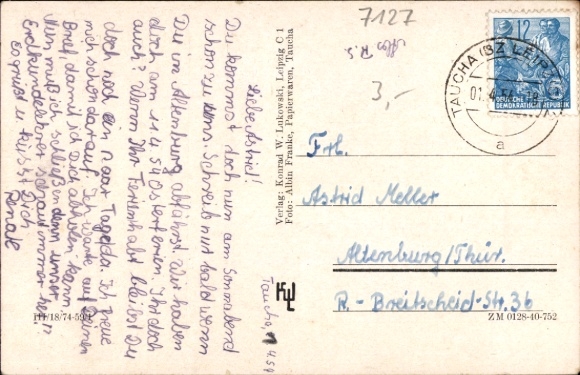 7127
3,-
12
DEUTSCHE
DEMOKRATISCHE REPUBLIK
TAUCHA (BZ LEIPZIG)
01.4.54
a
Taucha, 1.4.54
Liebe Astrid!
Du kommst doch nun am Sonnabend
schon zu uns. Schreib nur bald wenn
Du in Altenburg abfährst. Wir haben
doch am 11.4.54 Osterferien. Ihr doch
auch? Wenn Ihr Ferien habt bleibst Du
doch noch ein paar Tage da. Ich freue
mich schon darauf. Ich warte auf Deinen
Brief, damit ich Dich abholen kann.
Nun muß ich schließen denn unser
Erdkundelehrer schaut immer her.
Es grüßt u. küßt Dich
Renate
III/18/74-59/1
Verlag: Konrad W. Lukowski, Leipzig C 1
Foto: Albin Franke, Papierwaren, Taucha
KWL
Frl.
Astrid Meller
Altenburg/Thür.
R.-Breitscheid-Str. 36
ZM 0128-40-752